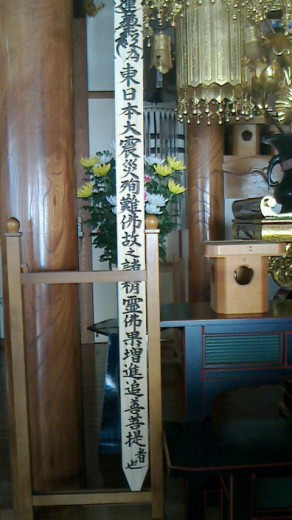 為東日本大震災殉難佛故之諸精靈佛果增進追善菩提者也